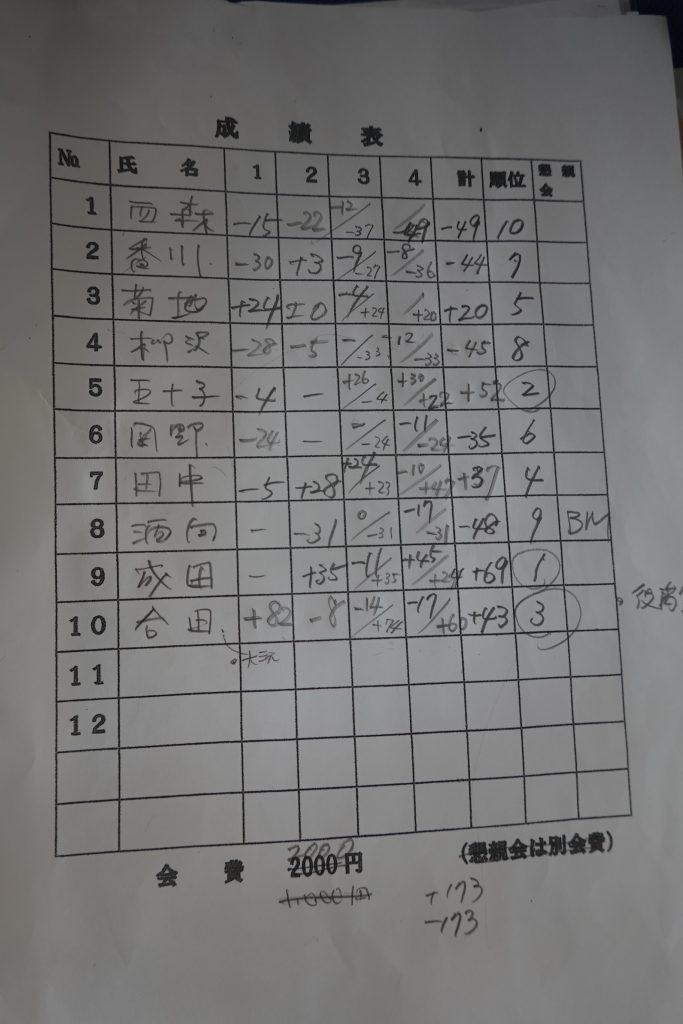 成績表
№ 氏名 1 2 3 4 計 順位 懇親会
1 西森 -15 -22 -12/-37 -49 -49 10
2 香川 -30 +3 -9/-27 -8/-36 -44 7
3 菊地 +24 ±0 -4/+24 /+20 +20 5
4 柳沢 -28 -5 -/-33 -12/-33 -45 8
5 五十子 -4 - +26/-4 +30/+22 +52 2
6 岡野 -24 - -/-24 -11/-24 -35 6
7 田中 -5 +28 +24/+23 -10/+47 +37 4
8 酒向 - -31 0/-31 -17/-31 -48 9 BM
9 成田 - +35 -11/+35 +45/+24 +69 1
10 合田 +82 -8 -14/+74 -17/+60 +43 3
・役満
・大沢
11
12
会費 2000円 (懇親会は別会費)
1,000円
+173
-173